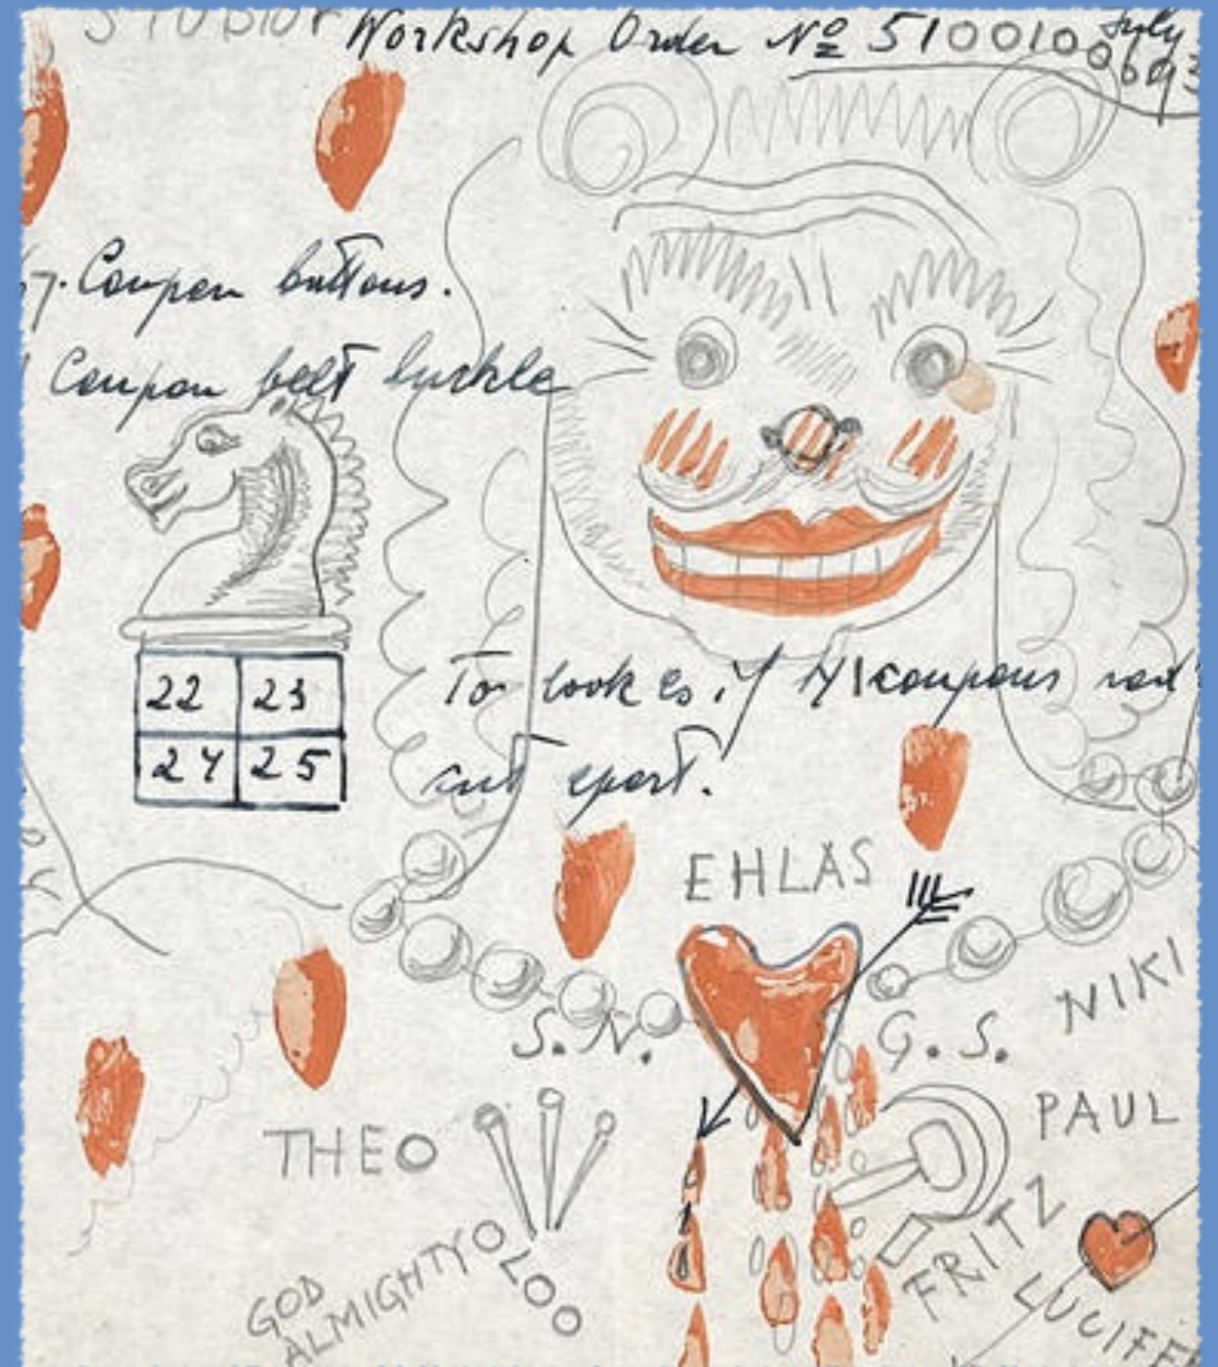 STUDIO
Workshop Order № 5100100
July
Coupon buttons.
Coupon belt buckle
22 23
24 25
To look as if 41 coupons
cut apart.
EHLAS
S.N.
G.S.
NIKI
THEO
PAUL
FRITZ
GOD
ALMIGHTY
LUCIFE